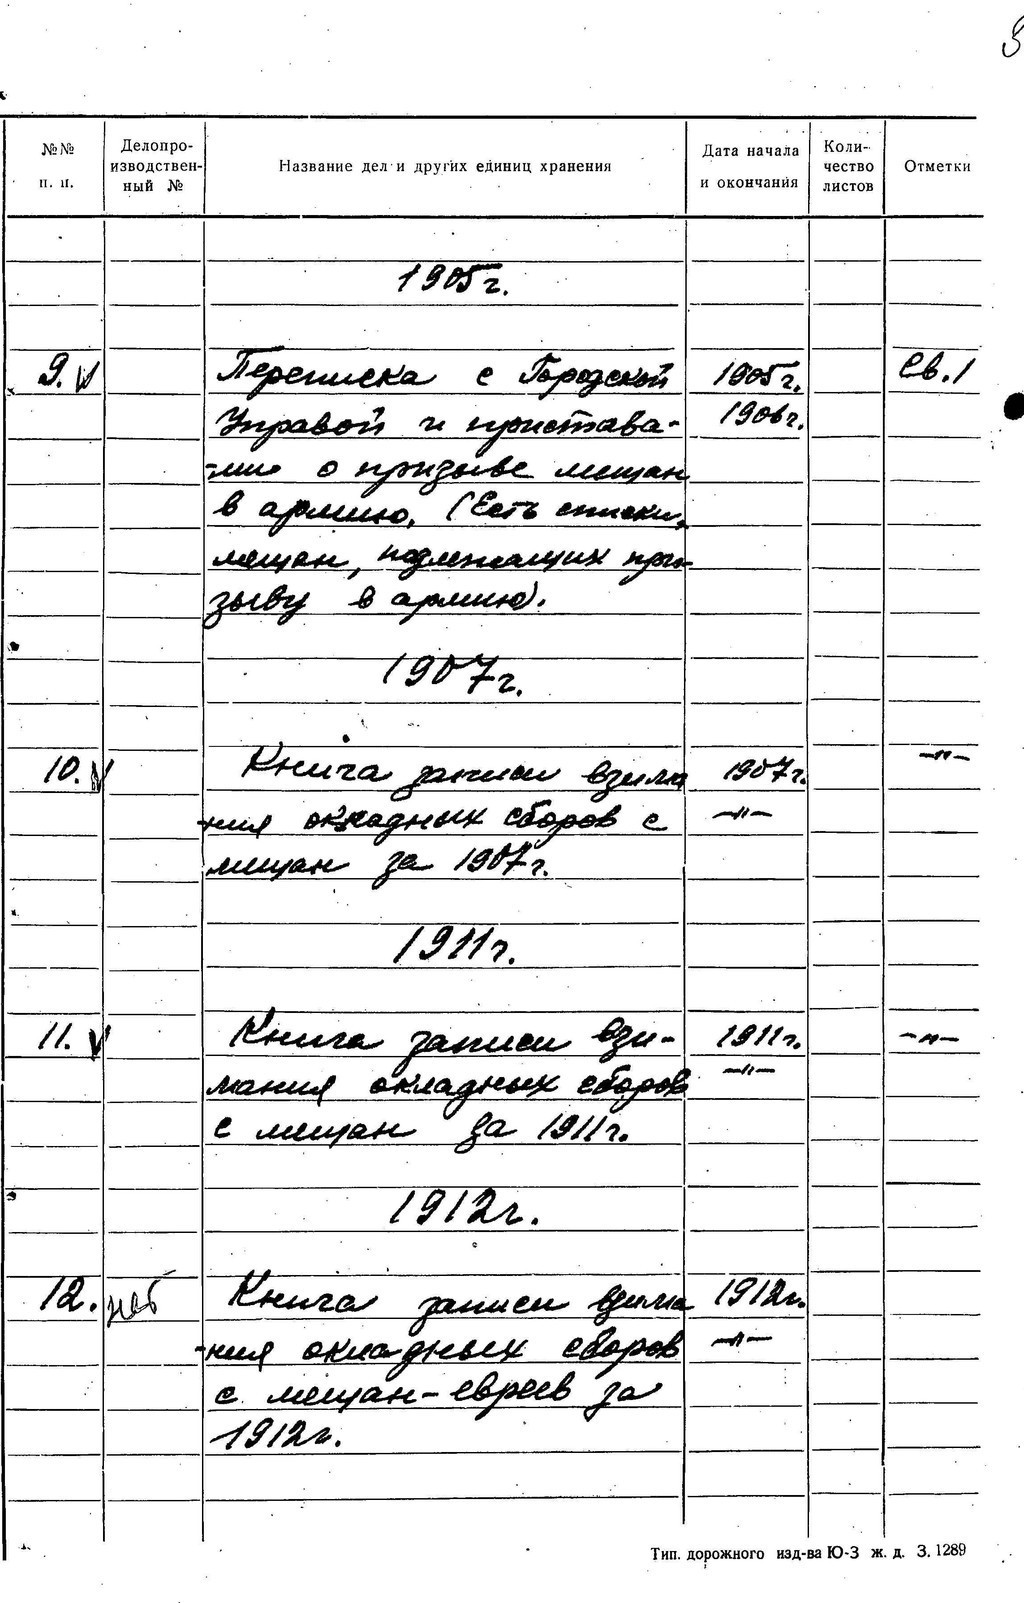 3
№№ п. п.
Делопро-
изводствен-
ный №
Название дел и других единиц хранения
Дата начала
и окончания
Коли-
чество
листов
Отметки
1905г.
9. V Переписка с Городской 1905г. Св. 1
Управой и пристава- 1906г.
-ми о призыве мещан
в армию. (Есть списки
мещан, подлежащих при-
зыву в армию).
1907г.
10. V Книга записи взима 1907г. —"—
-ния окладных сборов с —"—
мещан за 1907г.
1911г.
11. V Книга записи взи- 1911г. —"—
мания окладных сборов —"—
с мещан за 1911г.
1912г.
12. нет Книга записи взима 1912г.
-ния окладных сборов —"—
с мещан-евреев за
1912г.
Тип. дорожного изд-ва Ю-З ж. д. З. 1289